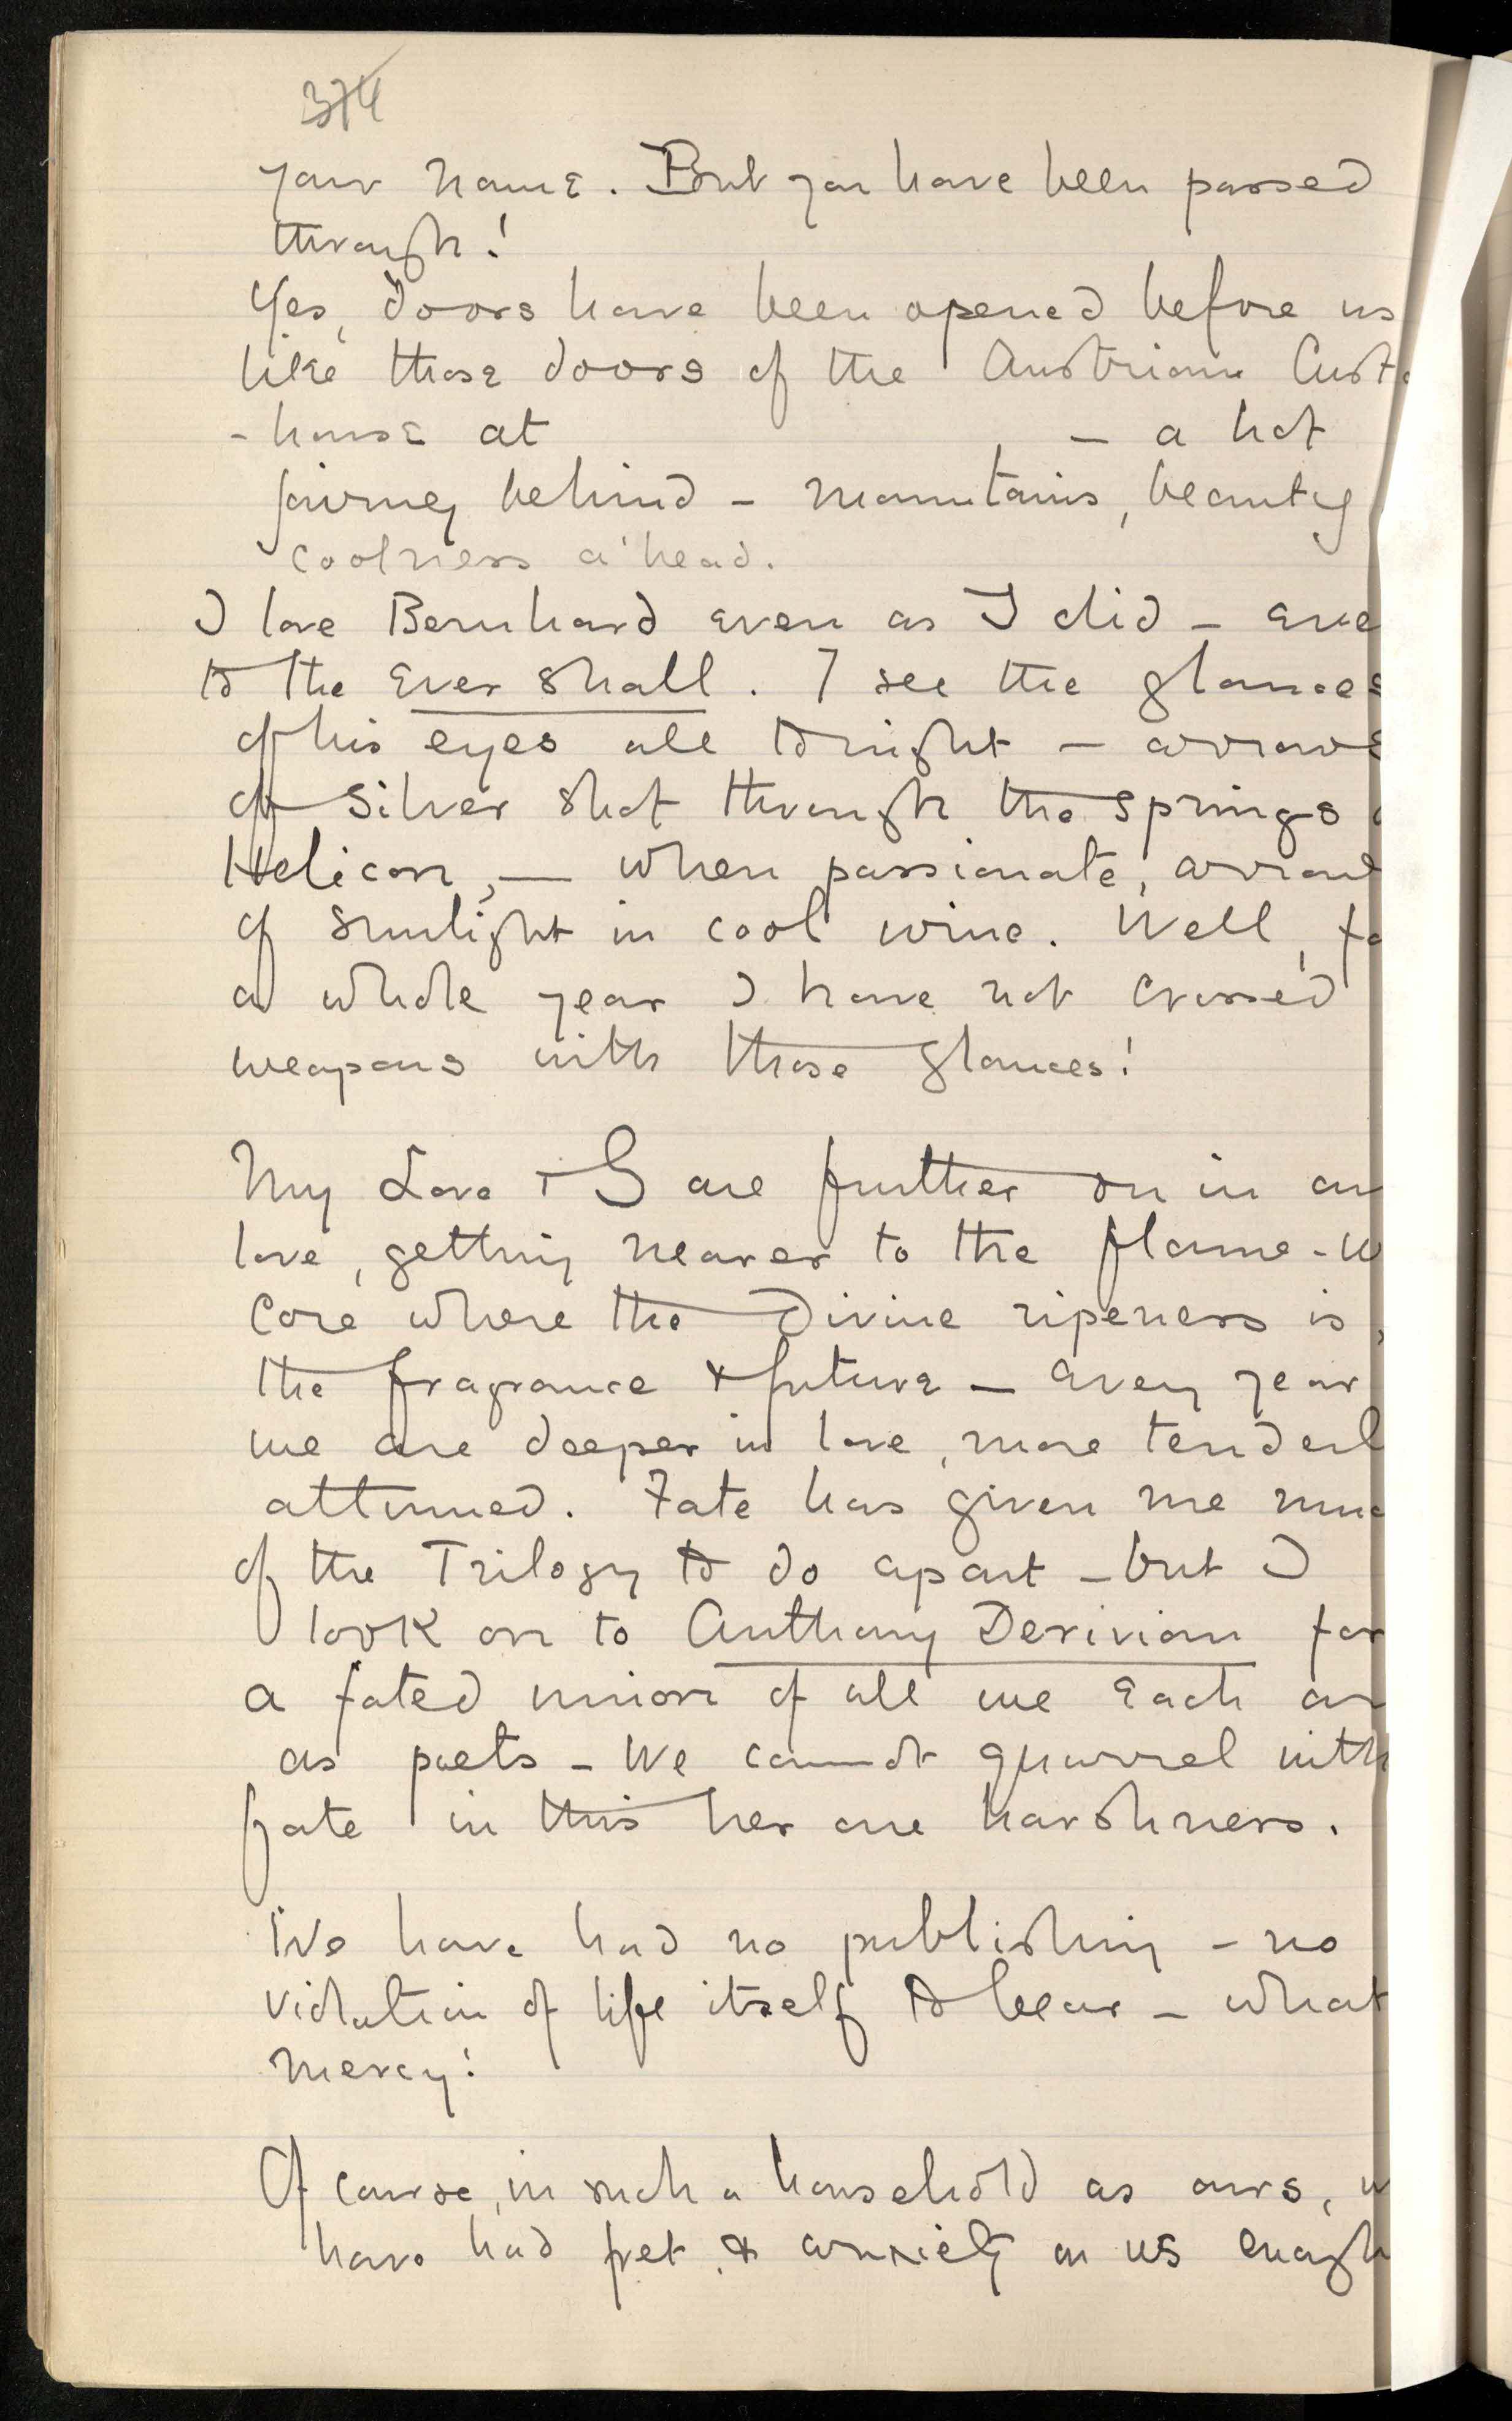 374
your name. But you have been passed
through!
Yes, doors have been opened before us
like those doors of the Austrian Custo
- house at — a hot
journey behind – mountains, beauty
coolness a'head.
I love Bernhard even as I did – eve
to the Ever shall. I see the glances
of his eyes all tonight – arrows
of silver shot through the springs o
Helicon, — when passionate, arrows
of sunlight in cool wine. Well, fo
a whole year I have not crossed
weapons with those glances!
My Love & I are further on in our
love, getting nearer to the flame-w
core where the Divine ripeness is,
the fragrance & future – every year
we are deeper in love, more tenderl
attuned. Fate has given me muc
of the Trilogy to do apart – but I
look on to Anthony Derivian for
a fated union of all we each ar
as poets – We cannot quarrel with
fate in this her one harshness.
We have had no publishing – no
violation of life itself to bear – what
mercy!
Of course, in such a household as ours, w
have had fret & anxiety on us enough